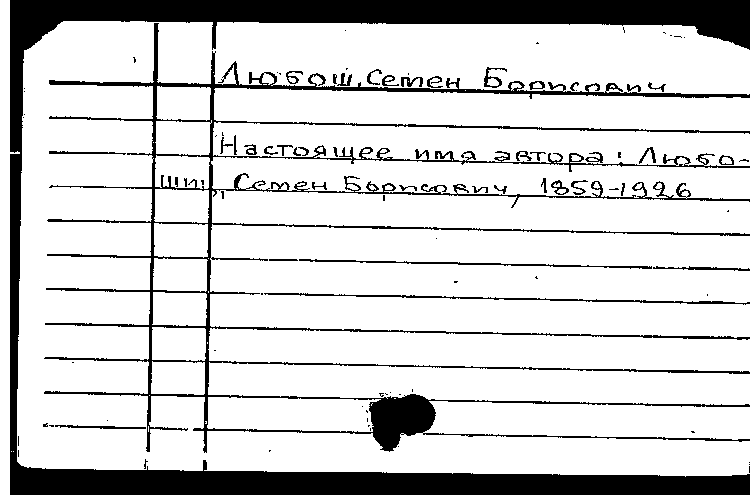 Любош, Семен Борисович
Настоящее имя автора: Любо-
шиц, Семен Борисович, 1859-1926